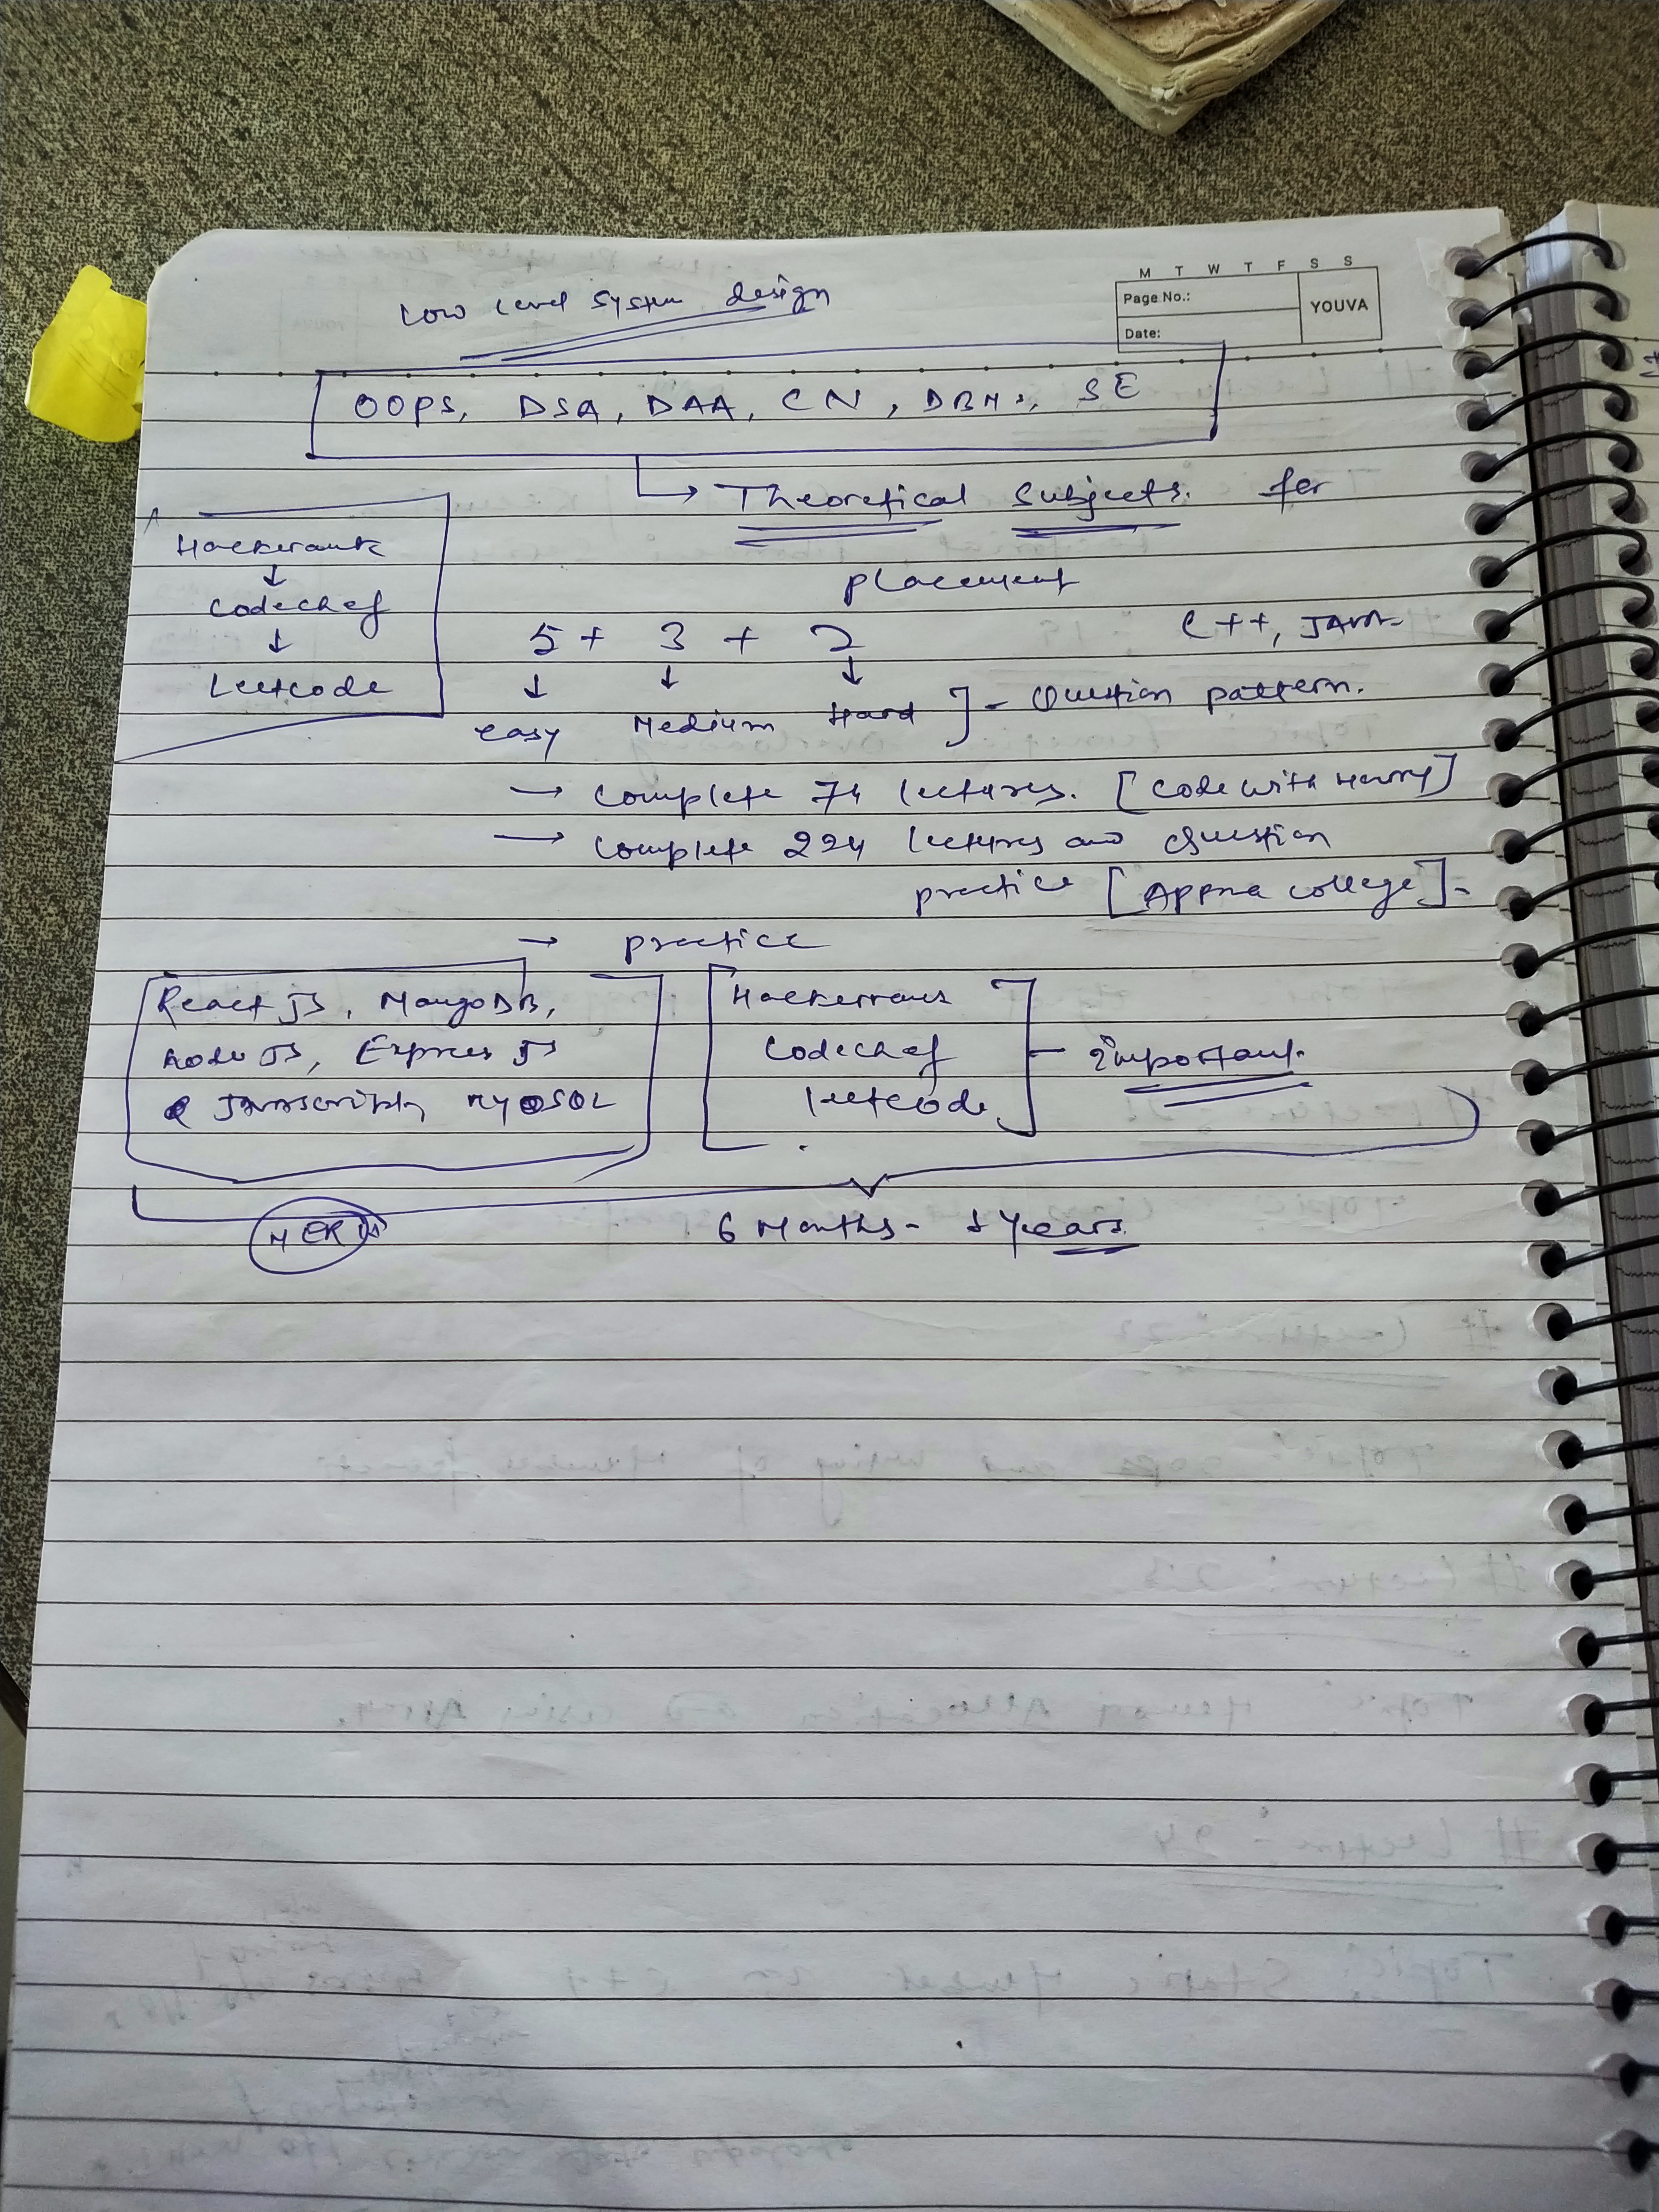 M T W T F S S
Page No.:
YOUVA
Date:
Low Level System design
OOPS, DSA, DAA, CN, DBMS, SE
→ Theoretical Subjects for
placement
Hackerank
↓
Codechef
↓
Leetcode
C++, JAVA
5 + 3 + 2
↓ ↓ ↓
easy Medium Hard ] - Question pattern.
→ Complete 74 lectures. [Code with Harry]
→ Complete 224 lectures and Question
practice [Appna College].
→ practice
React JS, MongoDB,
Node JS, Express JS
Javascript, MySQL
Hackerrank
Codechef
leetcode
- Important.
MERN
6 Months - Years.